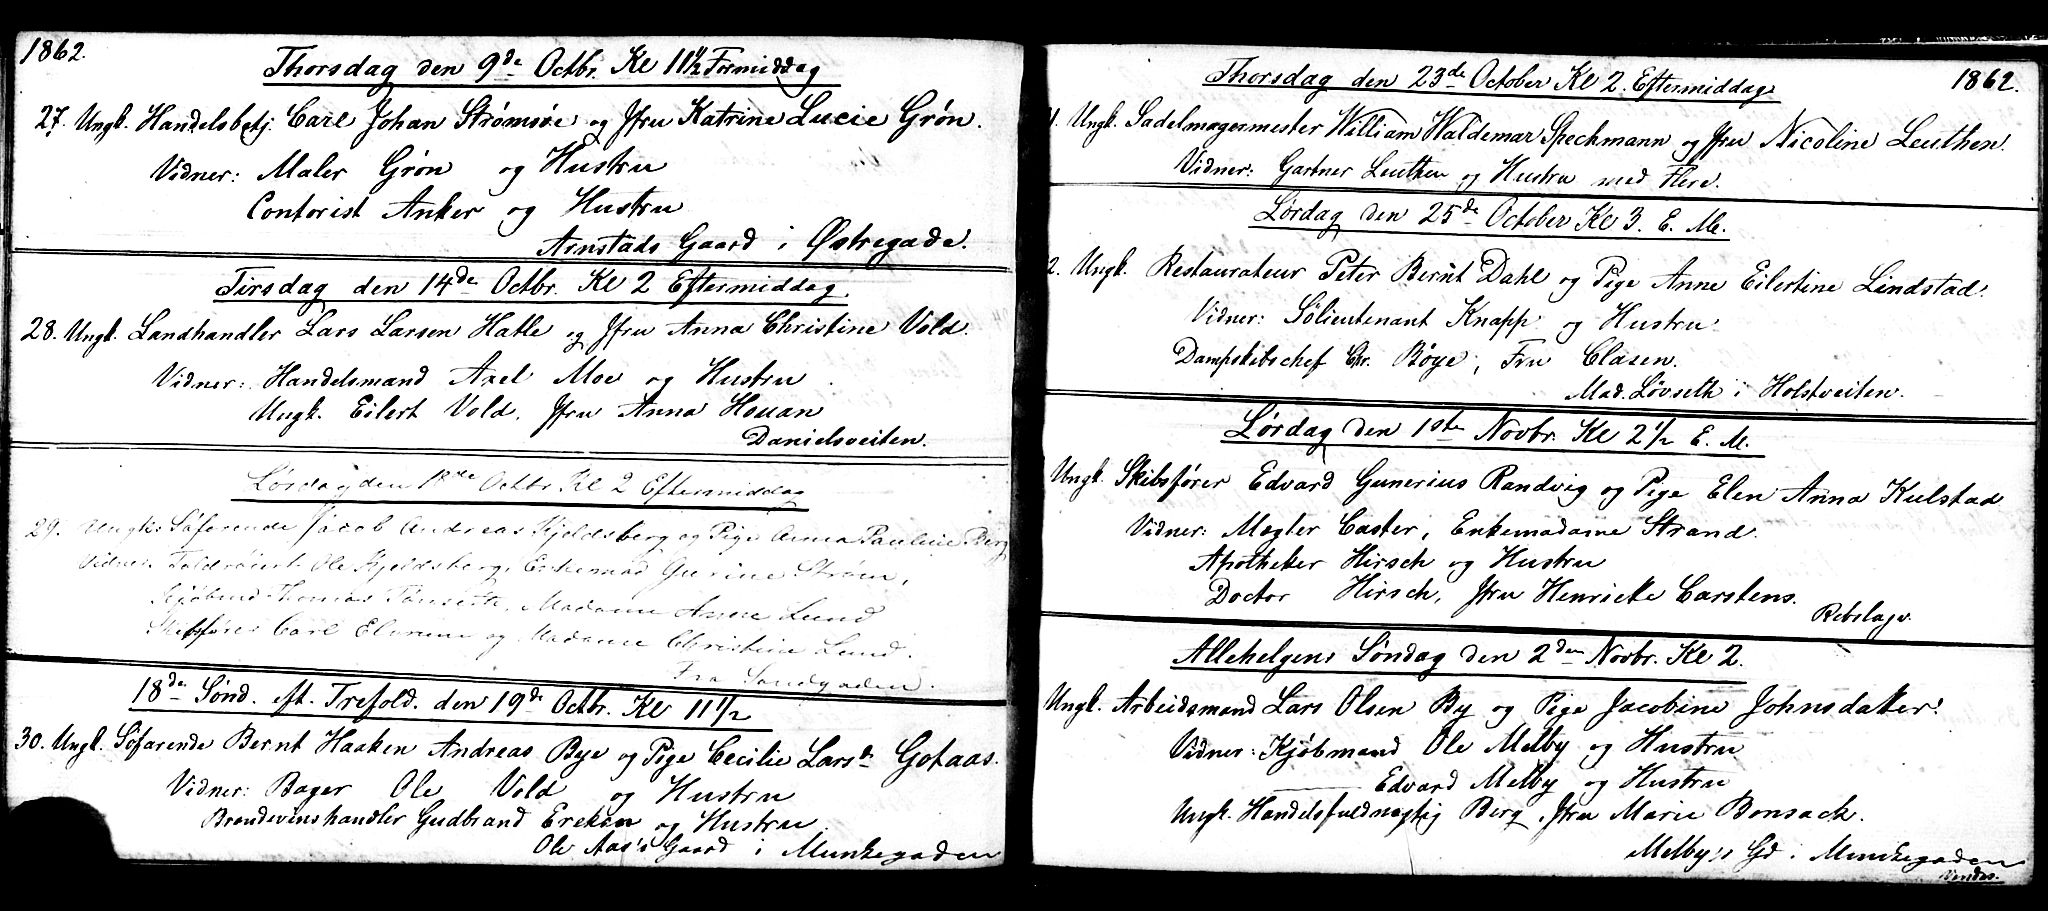 1862.
Thorsdag den 9de Octbr. Kl 11½ Formiddag
27. Ungk. Handelsbetj. Carl Johan Strømsøe og Jfru Katrine Lucie Grøn.
Vidner: Maler Grøn og Hustru
Contorist Anker og Hustru
Arnstads Gaard i Østregade.
Tirsdag den 14de Octbr. Kl 2 Eftermiddag.
28. Ungk. Landhandler Lars Larsen Hatle og Jfru Anna Christine Vold.
Vidner: Handelsmand Axel Moe og Hustru
Ungk. Eilert Vold, Jfru Anna Houan
Danielsveiten.
Lørdag den 18de Octbr Kl 2 Eftermiddag
29. Ungk. Søfarende Jacob Andreas Kjeldsberg og Pige Anna Pauline Berg
Vidner: Ole Kjeldsberg, Enkemad Gurine Strøm,
Thomas Madame Anne Lund
Skibsfører Carl og Madame Christine Lund.
Fra Sandgaden.
18de Sønd. eft. Trefold. den 19de Octbr. Kl 11½
30. Ungk. Søfarende Bernt Haaken Andreas Bye og Pige Cecilie Larsdr Gotaas.
Vidner: Bager Ole Vold og Hustru
Brændevinshandler Gudbrand Ereksen og Hustru.
Ole Aas's Gaard i Munkegaden
Thorsdag den 23de October Kl 2. Eftermiddag.
1862.
1. Ungk. Sadelmagermester William Waldemar Speckmann og Jfru Nicoline Leuthen.
Vidner: Gartner Leuthen og Hustru med Flere.
Lørdag den 25de October Kl 3. E. M.
2. Ungk. Restaurateur Peter Bernt Dahl og Pige Anne Eilertine Lindstad.
Vidner: Sølieutenant Knapp og Hustru.
Dampskibschef Chr. Bøye, Fru Clasen.
Mad. Løvseth i Holstveiten.
Lørdag den 1ste Novbr. Kl 2½ E. M.
Ungk. Skibsfører Edvard Gunerius Randvig og Pige Elen Anna Kulstad
Vidner: Mægler Caster, Enkemadame Strand.
Apotheker Hirsch og Hustru
Doctor Hirsch, Jfru Henricke Carstens.
Rebslager.
Allehelgens Søndag den 2den Novbr. Kl 2.
Ungk. Arbeidsmand Lars Olsen By og Pige Jacobine Johnsdatter.
Vidner: Kjøbmand Ole Melby og Hustru
Edvard Melby og Hustru
Ungk. Handelsfuldmægtig Berg, Jfru Marie Bonsack.
Melby's Gd. i Munkegaden
Vendes.